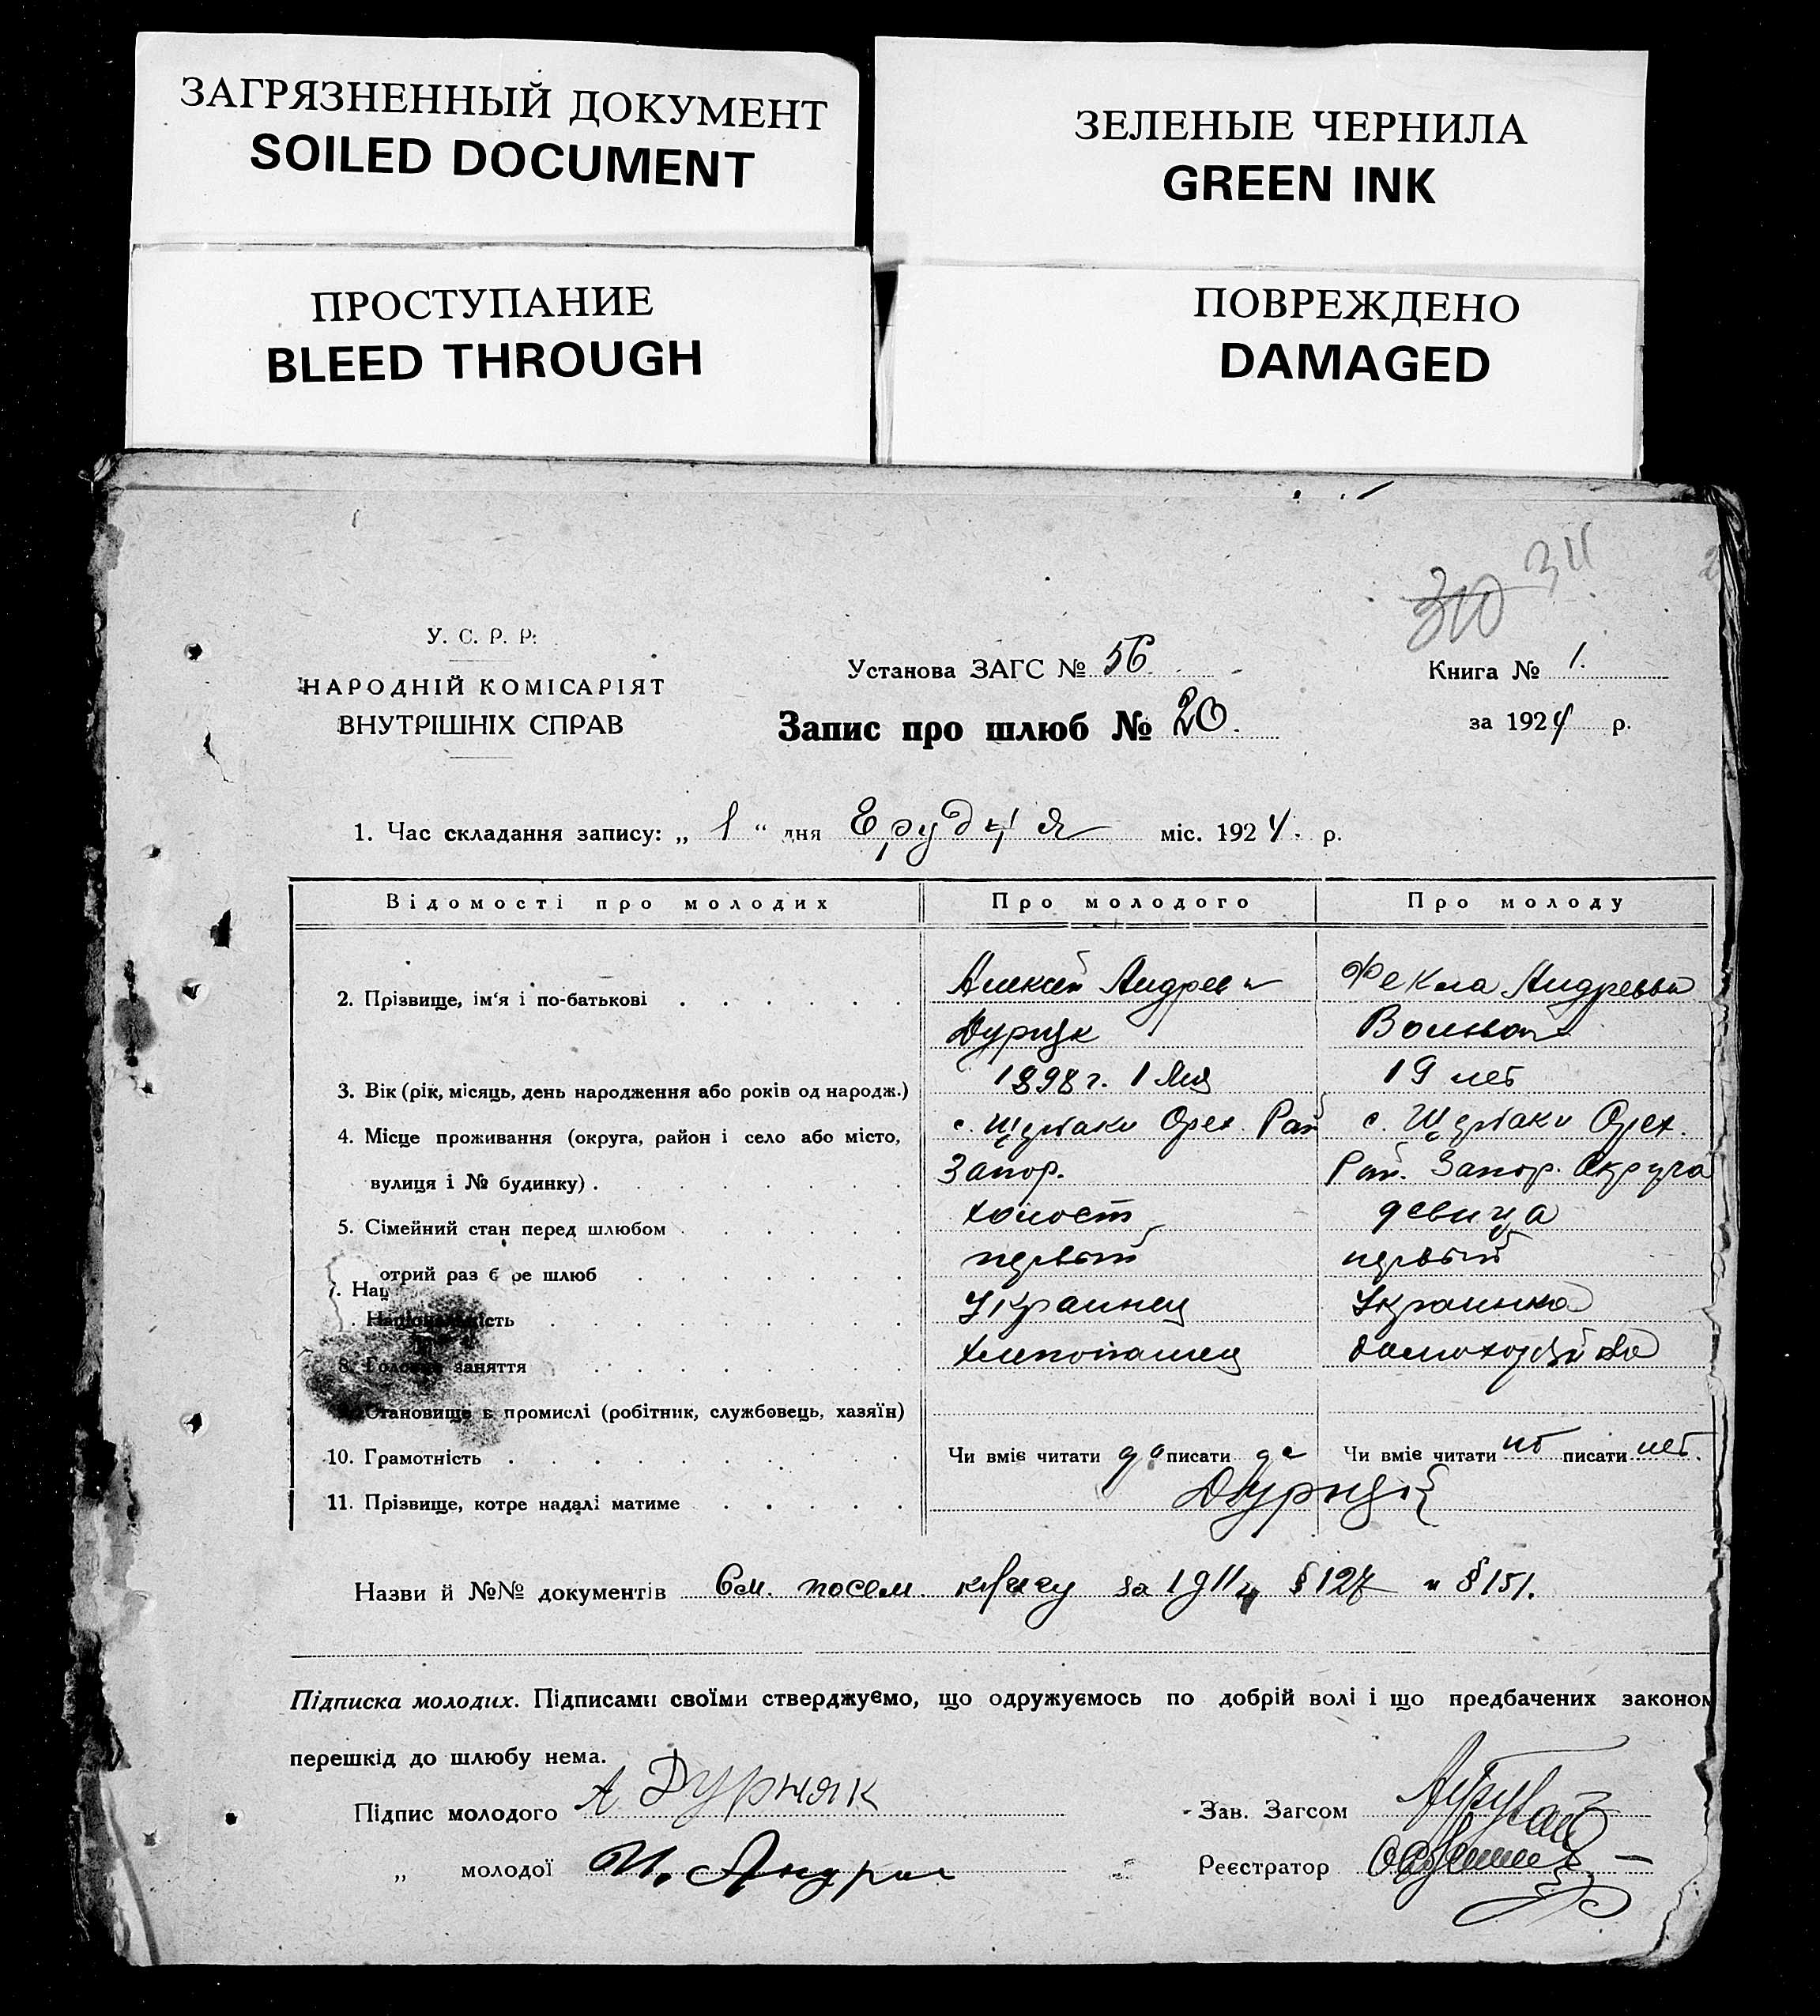 ЗАГРЯЗНЕННЫЙ ДОКУМЕНТ
SOILED DOCUMENT
ЗЕЛЕНЫЕ ЧЕРНИЛА
GREEN INK
ПРОСТУПАНИЕ
BLEED THROUGH
ПОВРЕЖДЕНО
DAMAGED
У. С. Р. Р.
НАРОДНІЙ КОМІСАРІЯТ
ВНУТРІШНІХ СПРАВ
Установа ЗАГС № 56.
Запис про шлюб № 20.
Книга № 1.
за 1924 р.
1. Час складання запису: „ 1 “ дня міс. 1924. р.
Відомості про молодих Про молодого Про молоду
2. Прізвище, ім‘я і по-батькові Алексей Андреев Фекла Андреевна
3. Вік (рік, місяць, день народження або років од народж.) 1898 г. 1 19 лет
4. Місце проживання (округа, район і село або місто, с. Щербаки Орех. Рай с. Щербаки Орех.
вулиця і № будинку) . Запор. Рай. Запор. Округа
5. Сімейний стан перед шлюбом холост девица
отрий раз бере шлюб первый первый
. Нац
. Національність Украинец Украинка
8. Головне заняття хлепопашец домохозяйка
Становище в промислі (робітник, службовець, хазяїн)
10. Грамотність Чи вміє читати да писати да Чи вміє читати писати нет.
11. Прізвище, котре надалі матиме
Назви й №№ документів См. посем. книгу за § 127 и § 151.
Підписка молодих. Підписами своїми стверджуємо, що одружуємось по добрій волі і що предбачених законом
перешкід до шлюбу нема.
Підпис молодого А Дурняк
Зав. Загсом
„ молодої
Реєстратор